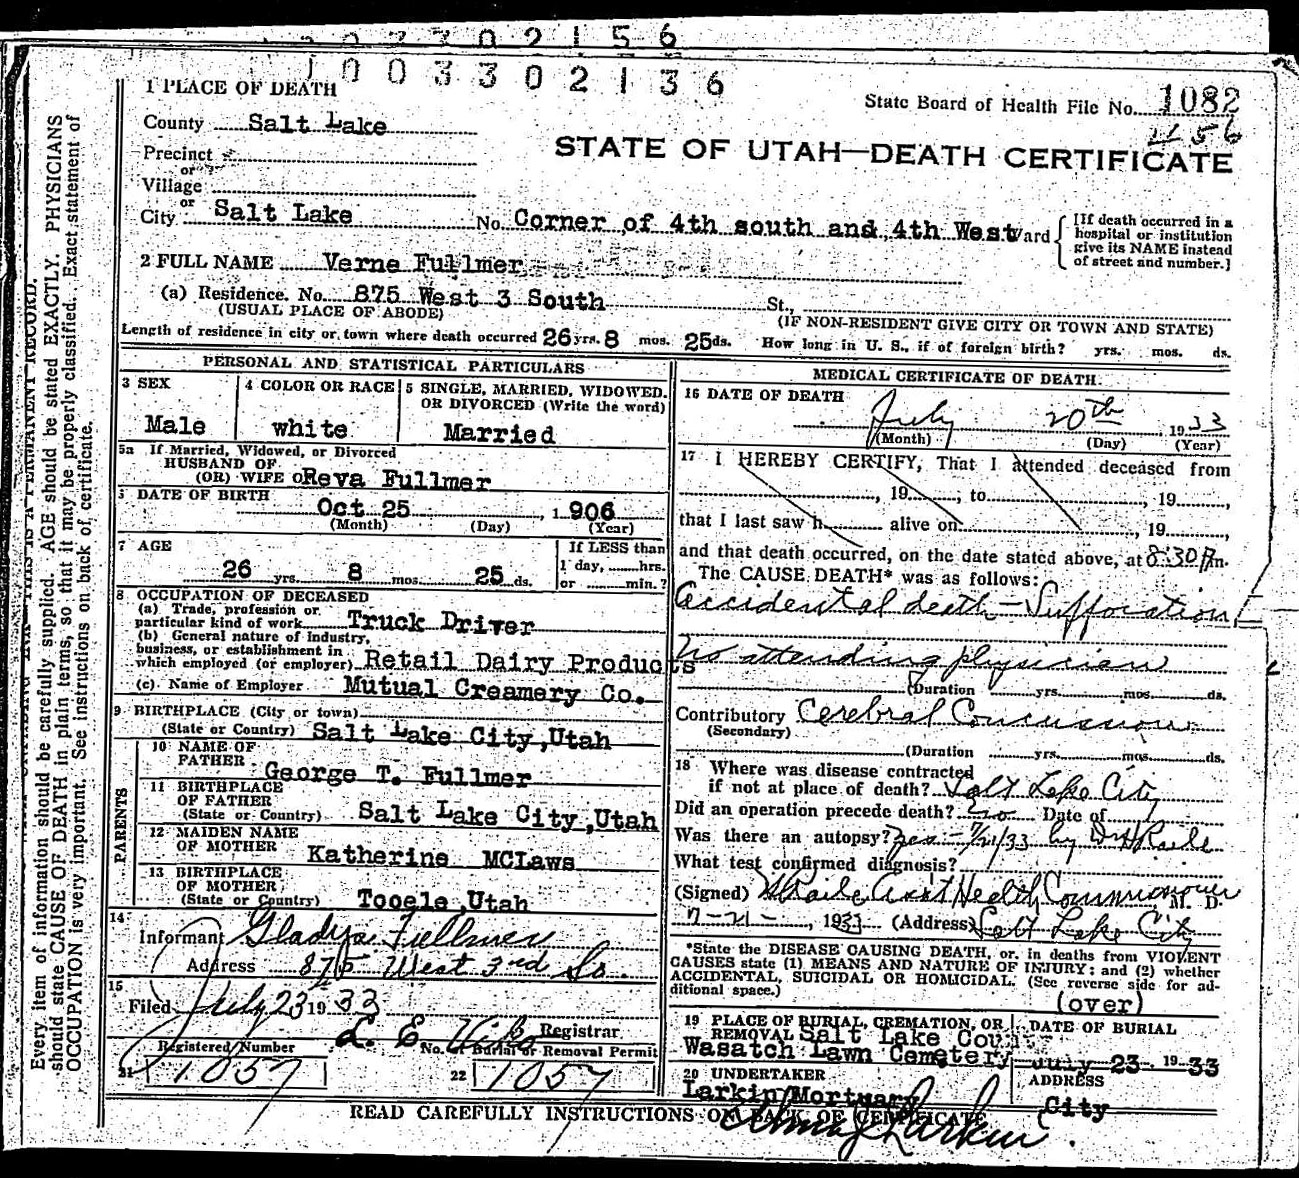 1003302136
1 PLACE OF DEATH
State Board of Health File No. 1082
1156
County Salt Lake
STATE OF UTAH—DEATH CERTIFICATE
Precinct
or
Village
or
City Salt Lake No. Corner of 4th south and 4th West Ward
[If death occurred in a
hospital or institution
give its NAME instead
of street and number.]
2 FULL NAME Verne Fullmer
(a) Residence. No. 875 West 3 South St.,
(USUAL PLACE OF ABODE) (IF NON-RESIDENT GIVE CITY OR TOWN AND STATE)
Length of residence in city or town where death occurred 26 yrs. 8 mos. 25 ds. How long in U. S., if of foreign birth? yrs. mos. ds.
PERSONAL AND STATISTICAL PARTICULARS
3 SEX
Male
4 COLOR OR RACE
white
5 SINGLE, MARRIED, WIDOWED.
OR DIVORCED (Write the word)
Married
5a If Married, Widowed, or Divorced
HUSBAND OF
(OR) WIFE OF Reva Fullmer
DATE OF BIRTH
Oct 25, 1906
(Month) (Day) (Year)
7 AGE
26 yrs. 8 mos. 25 ds.
If LESS than
1 day, hrs.
or min.?
8 OCCUPATION OF DECEASED
(a) Trade, profession or
particular kind of work Truck Driver
(b) General nature of Industry,
business, or establishment in
which employed (or employer) Retail Dairy Products
(c) Name of Employer Mutual Creamery Co.
9 BIRTHPLACE (City or town)
(State or Country) Salt Lake City,Utah
PARENTS
10 NAME OF
FATHER George T. Fullmer
11 BIRTHPLACE
OF FATHER
(State or Country) Salt Lake City,Utah
12 MAIDEN NAME
OF MOTHER Katherine MCLaws
13 BIRTHPLACE
OF MOTHER
(State or Country) Tooele,Utah
14
Informant Gladys Fullmer
Address 875 West 3rd So.
15
Filed July 23 1933
L. E. Registrar
Registered Number
21 1057
No. of Burial or Removal Permit
22 1057
MEDICAL CERTIFICATE OF DEATH.
16 DATE OF DEATH
July 20th 1933
(Month) (Day) (Year)
17 I HEREBY CERTIFY, That I attended deceased from
, 19 , to , 19 ,
that I last saw h alive on , 19 ,
and that death occurred, on the date stated above, at 8:30 Pm.
The CAUSE DEATH* was as follows:
Accidental death - Suffocation
No attending physician
(Duration yrs. mos. ds.
Contributory Cerebral Concussion
(Secondary)
(Duration yrs. mos. ds.
18 Where was disease contracted
if not at place of death? Salt Lake City
Did an operation precede death? no Date of
Was there an autopsy? yes - 7/21/33 by Dr H Raile
What test confirmed diagnosis?
(Signed) H Raile Asst Health Commissioner M. D.
7-21-, 1933 (Address) Salt Lake City
*State the DISEASE CAUSING DEATH, or, in deaths from VIOLENT
CAUSES state (1) MEANS AND NATURE OF INJURY: and (2) whether
ACCIDENTAL, SUICIDAL OR HOMICIDAL. (See reverse side for ad-
ditional space.)
(over)
19 PLACE OF BURIAL, CREMATION, OR
REMOVAL Salt Lake
Wasatch Lawn Cemetery
DATE OF BURIAL
July 23, 1933
20 UNDERTAKER
Larkin Mortuary
ADDRESS
City
READ CAREFULLY INSTRUCTIONS ON BACK OF CERTIFICATE
Larkin
Every item of information should be carefully supplied. AGE should be stated EXACTLY. PHYSICIANS
should state CAUSE OF DEATH in plain terms, so that it may be properly classified. Exact statement of
OCCUPATION is very important. See instructions on back of certificate.